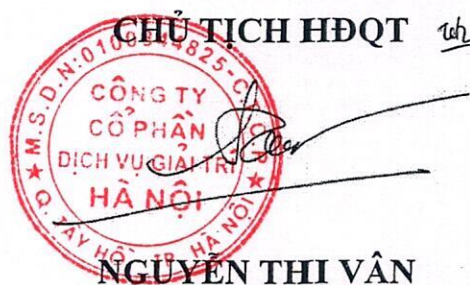 CHỦ TỊCH HĐQT
M.S.D.N:0100944825-C.T.C.P
CÔNG TY
CỔ PHẦN
DỊCH VỤ GIẢI TRÍ
HÀ NỘI
Q. TÂY HỒ - TP. HÀ NỘI
NGUYỄN THI VÂN